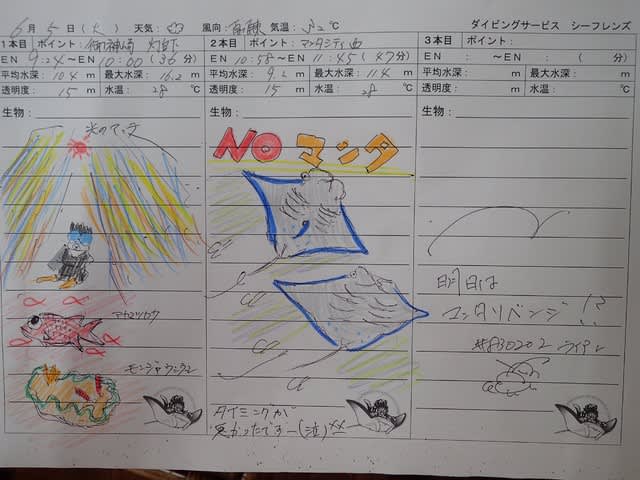 6月5日(火) 天気: 風向:南東 気温:32℃ ダイビングサービス シーフレンズ
1本目 ポイント:御神崎 灯台下
EN 9:24~EN 10:00(36分)
平均水深: 10.4 m 最大水深: 16.2 m
透明度: 15 m 水温: 28 ℃
生物:
光のアーチ
アカマツカサ
モンジャウミウシ
2本目 ポイント:マンタシティ
EN 10:58~EN 11:45(47分)
平均水深: 9.2 m 最大水深: 11.4 m
透明度: 15 m 水温: 28 ℃
生物:
NO マンタ
タイミングが
悪かったですー(泣)
3本目 ポイント:
EN : ~EN : ( 分)
平均水深: m 最大水深: m
透明度: m 水温: ℃
生物:
明日は
マンタリベンジ!?